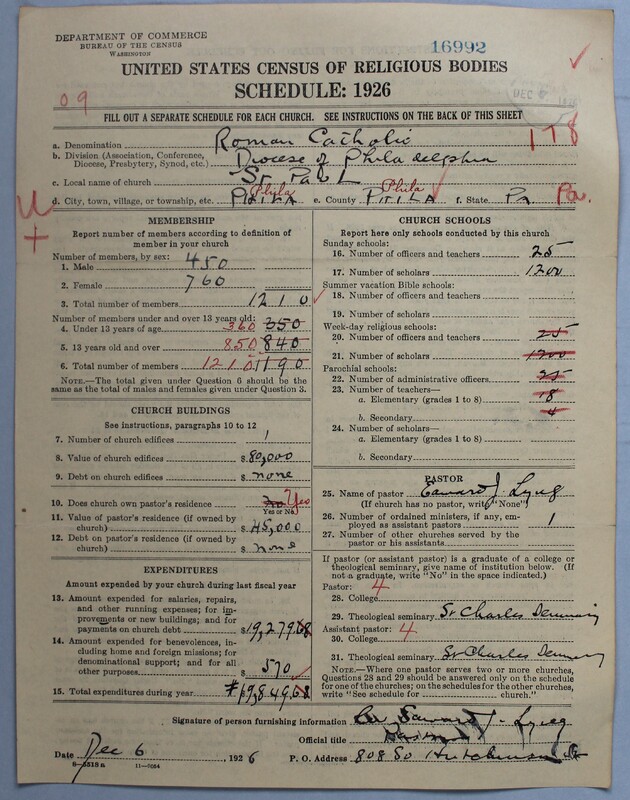 DEPARTMENT OF COMMERCE
BUREAU OF THE CENSUS
WASHINGTON
16992
UNITED STATES CENSUS OF RELIGIOUS BODIES
SCHEDULE: 1926
09
DEC
FILL OUT A SEPARATE SCHEDULE FOR EACH CHURCH. SEE INSTRUCTIONS ON THE BACK OF THIS SHEET
a. Denomination Roman Catholic 178
b. Division (Association, Conference, Diocese, Presbytery, Synod, etc.) Diocese of Philadelphia
c. Local name of church St Paul
d. City, town, village, or township, etc. PHILA Phila e. County PHILA Phila f. State Pa Pa.
MEMBERSHIP
Report number of members according to definition of member in your church
Number of members, by sex:
1. Male 450
2. Female 760
3. Total number of members 1210
Number of members under and over 13 years old:
4. Under 13 years of age 360 350
5. 13 years old and over 850 840
6. Total number of members 1210 1190
NOTE.—The total given under Question 6 should be the same as the total of males and females given under Question 3.
CHURCH BUILDINGS
See instructions, paragraphs 10 to 12
7. Number of church edifices 1
8. Value of church edifices $ 80,000
9. Debt on church edifices $ none
10. Does church own pastor's residence No Yes
Yes or No
11. Value of pastor's residence (if owned by church) $ 45,000
12. Debt on pastor's residence (if owned by church) $ none
EXPENDITURES
Amount expended by your church during last fiscal year
13. Amount expended for salaries, repairs, and other running expenses; for improvements or new buildings; and for payments on church debt $ 19,279.68
14. Amount expended for benevolences, including home and foreign missions; for denominational support; and for all other purposes $ 570
15. Total expenditures during year $ 19,849.68
CHURCH SCHOOLS
Report here only schools conducted by this church
Sunday schools:
16. Number of officers and teachers 25
17. Number of scholars 1200
Summer vacation Bible schools:
18. Number of officers and teachers
19. Number of scholars
Week-day religious schools:
20. Number of officers and teachers 25
21. Number of scholars 1200
Parochial schools:
22. Number of administrative officers 25
23. Number of teachers—
a. Elementary (grades 1 to 8) 18
b. Secondary 4
24. Number of scholars—
a. Elementary (grades 1 to 8)
b. Secondary
PASTOR
25. Name of pastor Edward J. Lyng
(If church has no pastor, write "None")
26. Number of ordained ministers, if any, employed as assistant pastors 1
27. Number of other churches served by the pastor or his assistants
If pastor (or assistant pastor) is a graduate of a college or theological seminary, give name of institution below. (If not a graduate, write "No" in the space indicated.)
Pastor: 4
28. College
29. Theological seminary St Charles Seminary
Assistant pastor: 4
30. College
31. Theological seminary St Charles Seminary
NOTE.—Where one pastor serves two or more churches, Questions 28 and 29 should be answered only on the schedule for one of the churches; on the schedules for the other churches, write "See schedule for church."
Signature of person furnishing information Edward J. Lyng
Official title
Date Dec 6, 1926 P. O. Address 808 So Hutchinson St
8—5518a 11—9284